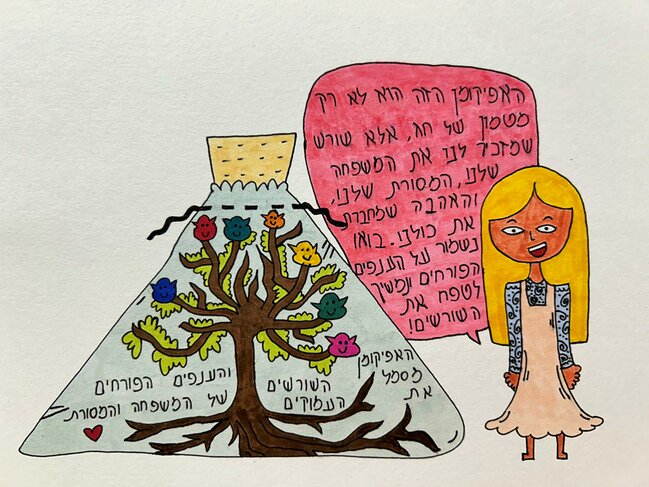 האפיקומן הזה הוא לא רק
מטמון של חג, אלא שורש
שמזכיר לנו את המשפחה
שלנו, המסורת שלנו,
והאהבה שמחברת
את כולנו. בואו
נשמור על הענפים
הפורחים ונמשיך
לטפח את
השורשים!
האפיקומן
מסמל
את
השורשים
העמוקים
והענפים הפורחים
של המשפחה והמסורת